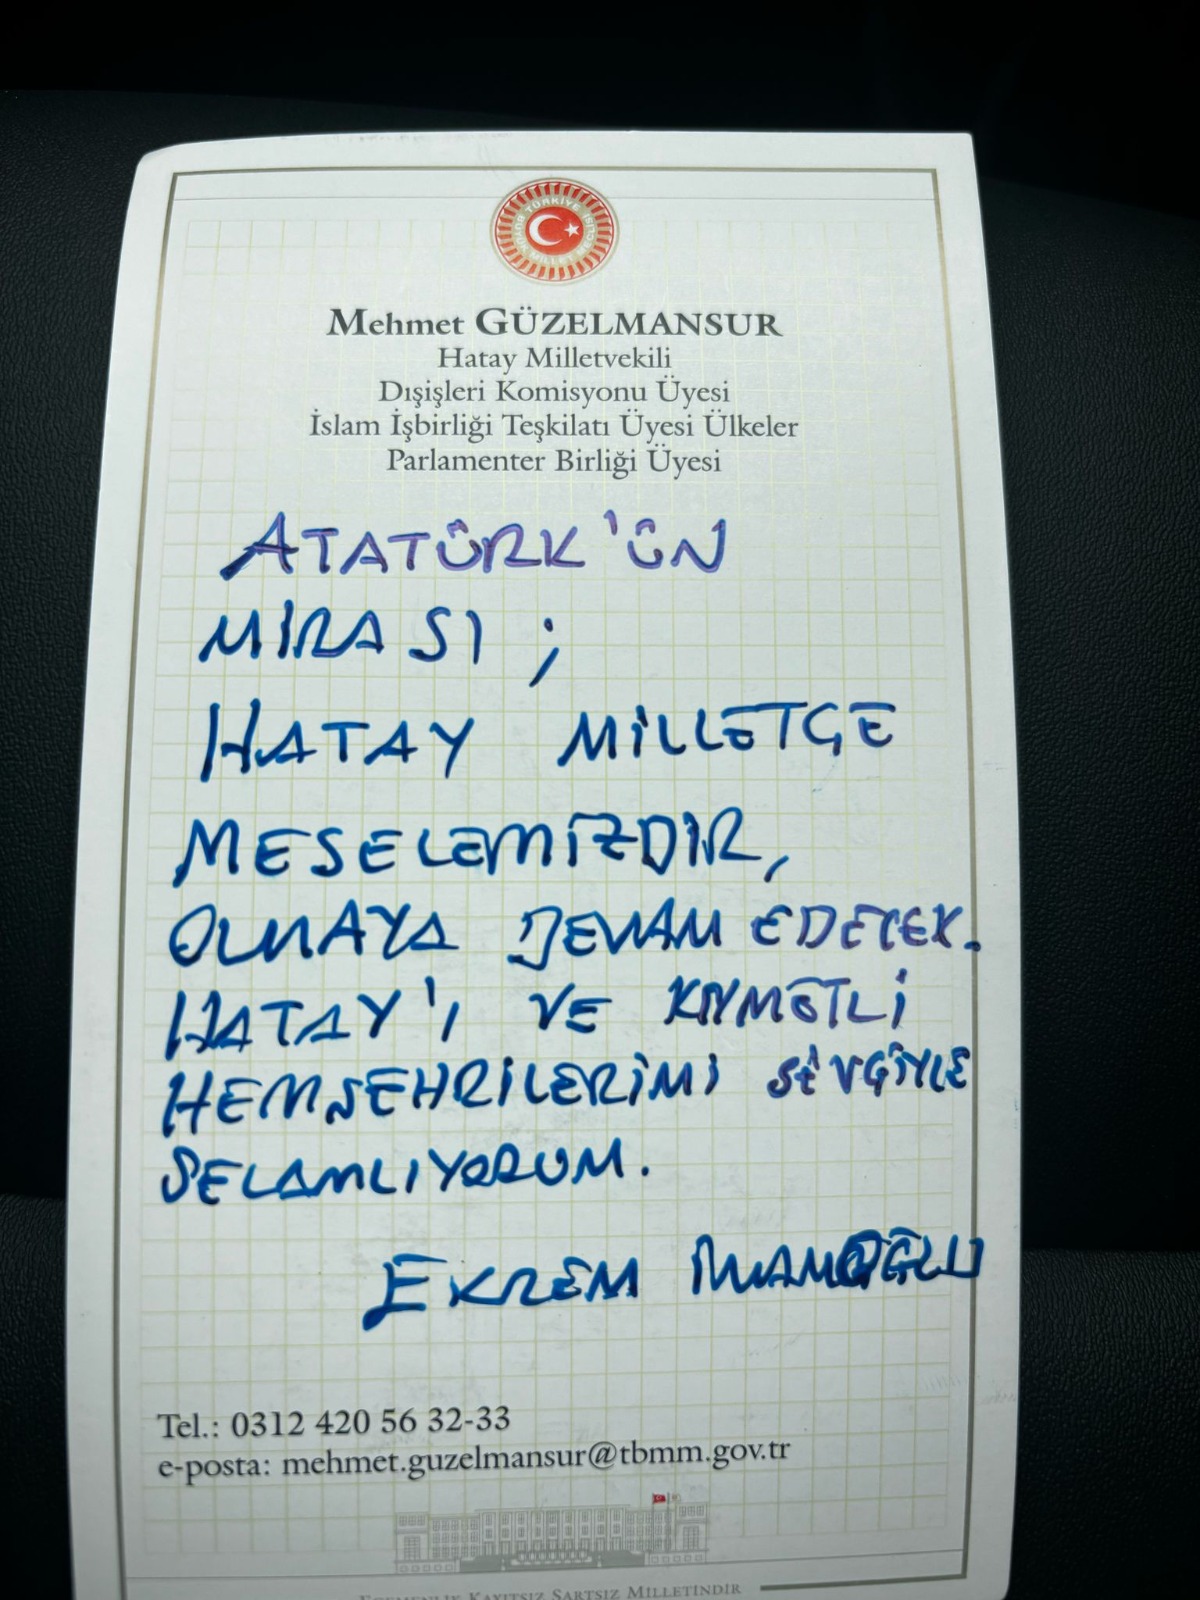 TÜRKİYE BÜYÜK MİLLET MECLİSİ
Mehmet GÜZELMANSUR
Hatay Milletvekili
Dışişleri Komisyonu Üyesi
İslam İşbirliği Teşkilatı Üyesi Ülkeler
Parlamenter Birliği Üyesi
ATATÜRK'ÜN
MİRASI;
HATAY MİLLETÇE
MESELEMİZDİR,
OLMAYA DEVAM EDECEK.
HATAY'I VE KIYMETLİ
HEMŞEHRİLERİMİ SEVGİYLE
SELAMLIYORUM.
EKREM İMAMOĞLU
Tel.: 0312 420 56 32-33
e-posta: mehmet.guzelmansur@tbmm.gov.tr
EGEMENLİK KAYITSIZ ŞARTSIZ MİLLETİNDİR